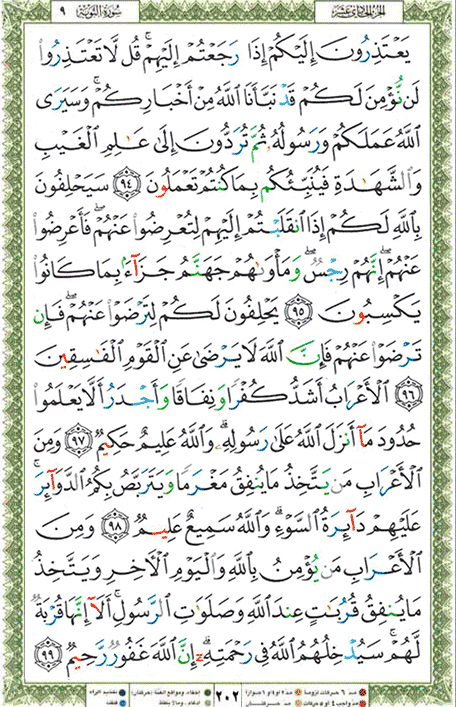 الجزء الحادي عشر سورة التوبة ٩
يَعْتَذِرُونَ إِلَيْكُمْ إِذَا رَجَعْتُمْ إِلَيْهِمْ ۚ قُل لَّا تَعْتَذِرُوا۟
لَن نُّؤْمِنَ لَكُمْ قَدْ نَبَّأَنَا ٱللَّهُ مِنْ أَخْبَارِكُمْ ۚ وَسَيَرَى
ٱللَّهُ عَمَلَكُمْ وَرَسُولُهُۥ ثُمَّ تُرَدُّونَ إِلَىٰ عَٰلِمِ ٱلْغَيْبِ
وَٱلشَّهَٰدَةِ فَيُنَبِّئُكُم بِمَا كُنتُمْ تَعْمَلُونَ ٩٤ سَيَحْلِفُونَ
بِٱللَّهِ لَكُمْ إِذَا ٱنقَلَبْتُمْ إِلَيْهِمْ لِتُعْرِضُوا۟ عَنْهُمْ ۖ فَأَعْرِضُوا۟
عَنْهُمْ ۖ إِنَّهُمْ رِجْسٌ ۖ وَمَأْوَىٰهُمْ جَهَنَّمُ جَزَآءًۢ بِمَا كَانُوا۟
يَكْسِبُونَ ٩٥ يَحْلِفُونَ لَكُمْ لِتَرْضَوْا۟ عَنْهُمْ ۖ فَإِن
تَرْضَوْا۟ عَنْهُمْ فَإِنَّ ٱللَّهَ لَا يَرْضَىٰ عَنِ ٱلْقَوْمِ ٱلْفَٰسِقِينَ
٩٦ ٱلْأَعْرَابُ أَشَدُّ كُفْرًا وَنِفَاقًا وَأَجْدَرُ أَلَّا يَعْلَمُوا۟
حُدُودَ مَآ أَنزَلَ ٱللَّهُ عَلَىٰ رَسُولِهِۦ ۗ وَٱللَّهُ عَلِيمٌ حَكِيمٌ ٩٧ وَمِنَ
ٱلْأَعْرَابِ مَن يَتَّخِذُ مَا يُنفِقُ مَغْرَمًا وَيَتَرَبَّصُ بِكُمُ ٱلدَّوَآئِرَ ۚ
عَلَيْهِمْ دَآئِرَةُ ٱلسَّوْءِ ۗ وَٱللَّهُ سَمِيعٌ عَلِيمٌ ٩٨ وَمِنَ
ٱلْأَعْرَابِ مَن يُؤْمِنُ بِٱللَّهِ وَٱلْيَوْمِ ٱلْءَاخِرِ وَيَتَّخِذُ
مَا يُنفِقُ قُرُبَٰتٍ عِندَ ٱللَّهِ وَصَلَوَٰتِ ٱلرَّسُولِ ۚ أَلَآ إِنَّهَا قُرْبَةٌ
لَّهُمْ ۚ سَيُدْخِلُهُمُ ٱللَّهُ فِى رَحْمَتِهِۦٓ ۗ إِنَّ ٱللَّهَ غَفُورٌ رَّحِيمٌ ٩٩
٢٠٢